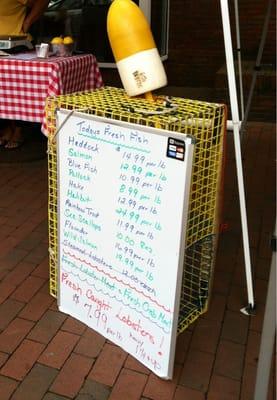 Todays Fresh Fish
Haddock $ 14.99 per lb
Salmon 12.99 per lb
Blue Fish 10.99 per lb
Pollock 8.99 per lb
Hake 12.99 per lb
Halibut per lb
Rainbow Trout 11.99 per lb
Sea Scallops 10.00 8oz
Flounder 16.99 per lb
Wild Salmon 19.99 per lb
Steamed Lobsters 12.00 each
Fresh Lobster Meat & Fresh Crab Meat
Fresh Caught Lobsters!
$ 7.99 per lb